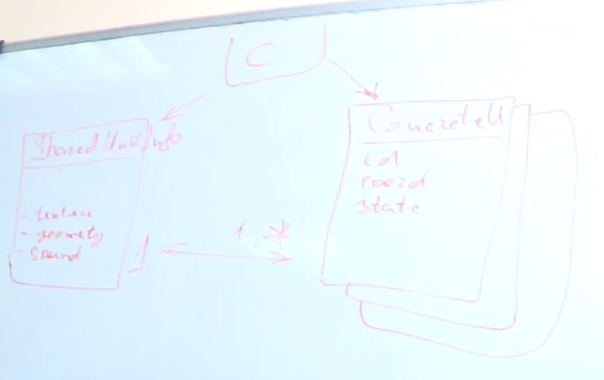 C
SharedUnitInfo
- texture
- geometry
- sound
1
1..*
ConcreteU
id
coord
state